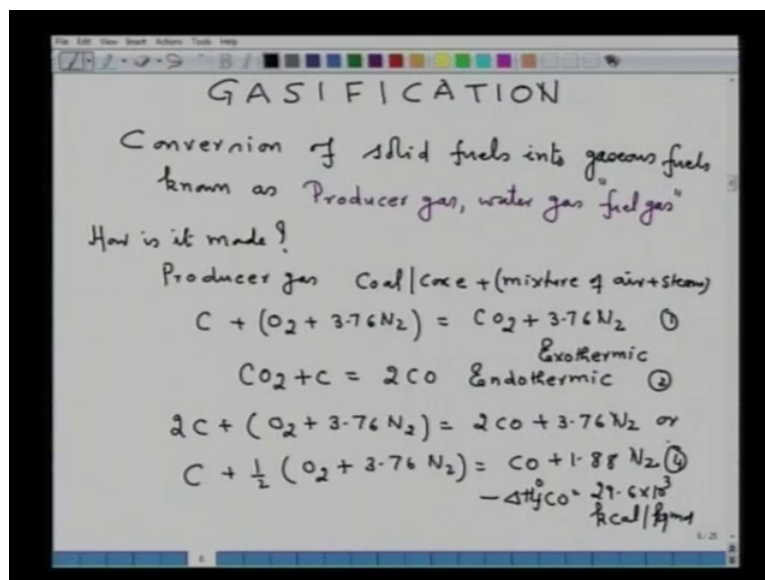 File Edit View Insert Actions Tools Help
GASIFICATION
Conversion of solid fuels into gaseous fuels
known as Producer gas, water gas "fuel gas"
How is it made?
Producer gas Coal|Coke + (mixture of air + steam)
C + (O2 + 3.76 N2) = CO2 + 3.76 N2 ①
Exothermic
CO2 + C = 2CO Endothermic ②
2C + (O2 + 3.76 N2) = 2CO + 3.76 N2 or
C + 1/2 (O2 + 3.76 N2) = CO + 1.88 N2 ④
-ΔH°f CO = 29.6×10³
kcal/kgmol
6/25
6